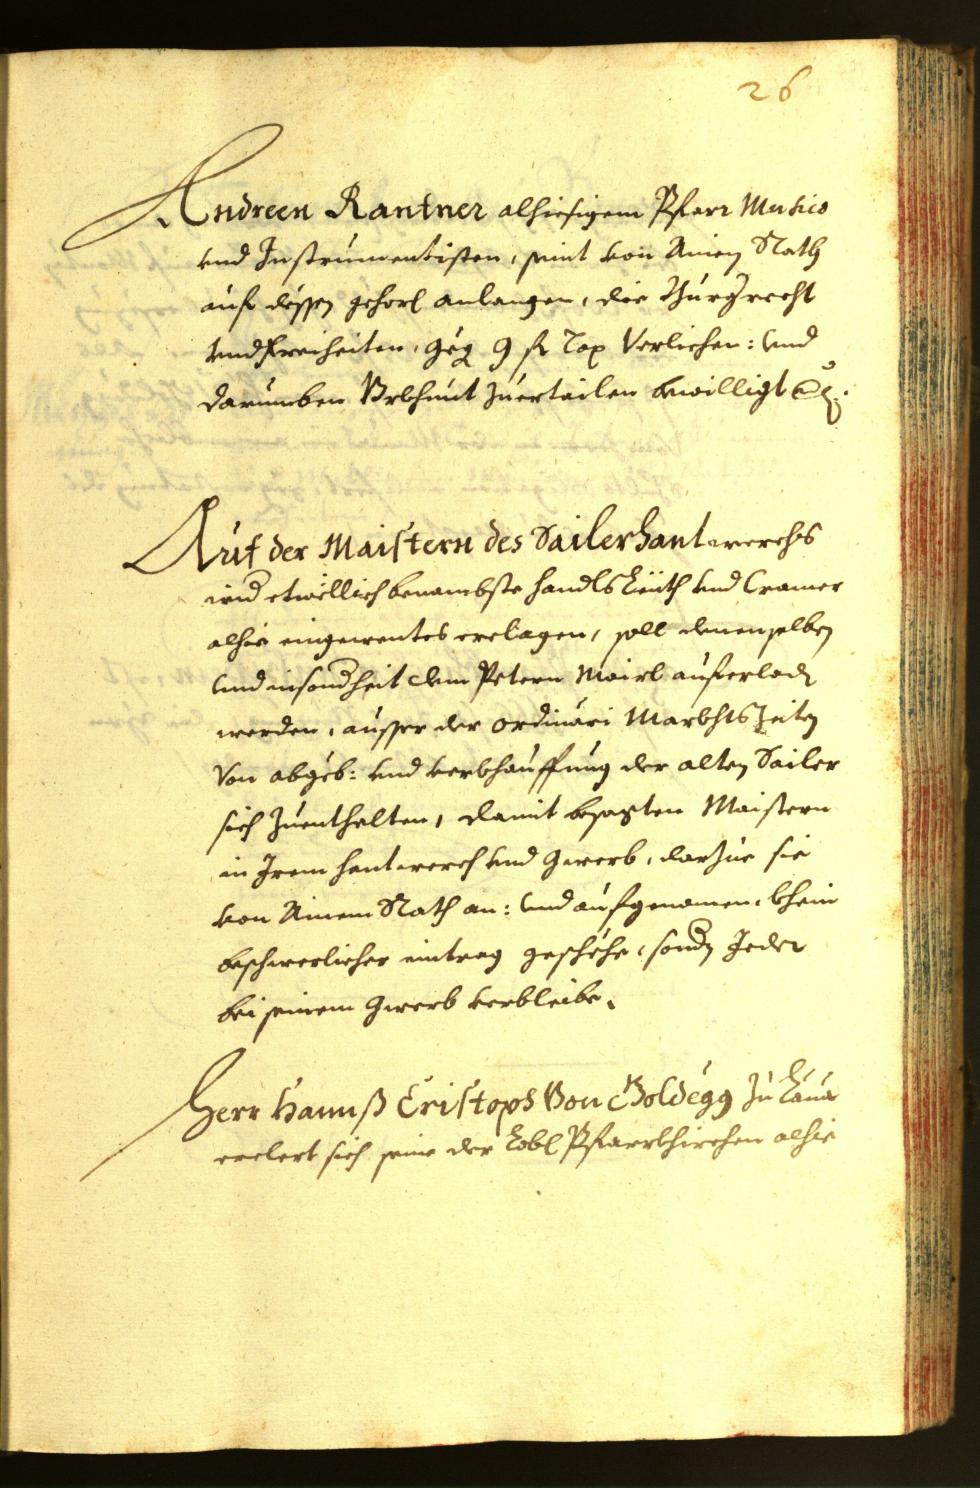 26
Andreen Rantner alhiesigem Pfarr Musico
vnd Instrumentisten, seint von Ainem Rath
auf dessen gehorl anlangen, die Burgrecht
vnd freiheiten, geg 9 fl Tax Verlichen: vnd
darumben Vrkhunt zuerteilen bewilligt
Auf der Maistern des Sailerhantwerchs
wid etwellich benambste handlsleuth vnd Cramer
alhie eingewentes erclagen, soll denenselben
vnd insondheit dem Petern Mairl auferladen
werden, ausser der ordinari Markhts Zeiten
Von abgeb: vnd verkhauffung der alten Sailer
sich zuenthalten, damit besagten Maistern
in Irem hantwerch vnd Gwerb, darzue sie
von Ainem Rath an: vnd aufgenomen, khein
beschwerlicher eintrag geschehe, sondn Jeder
bei seinem Gwerb verbleibe.
Herr Hannß Cristoph Von Goldegg zu Lana
erclert sich seine der Lobl Pfarrkhirchen alhie